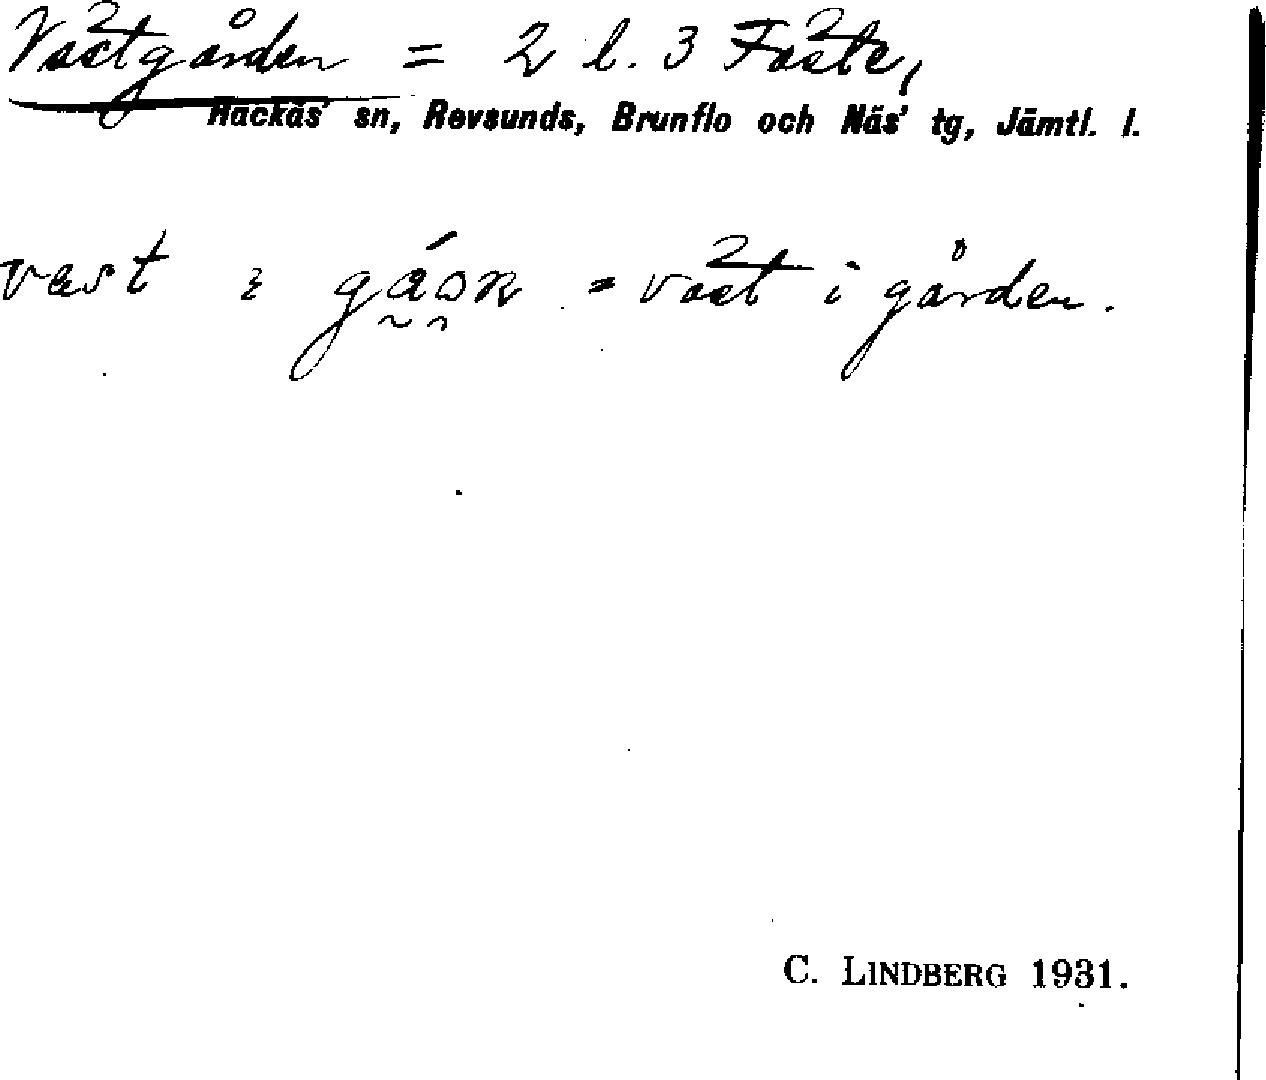 Västgården = 2 l. 3 Fäste,
Hackås sn, Revsunds, Brunflo och Näs' tg, Jämtl. l.
väst i gården = väst i gården.
C. LINDBERG 1931.